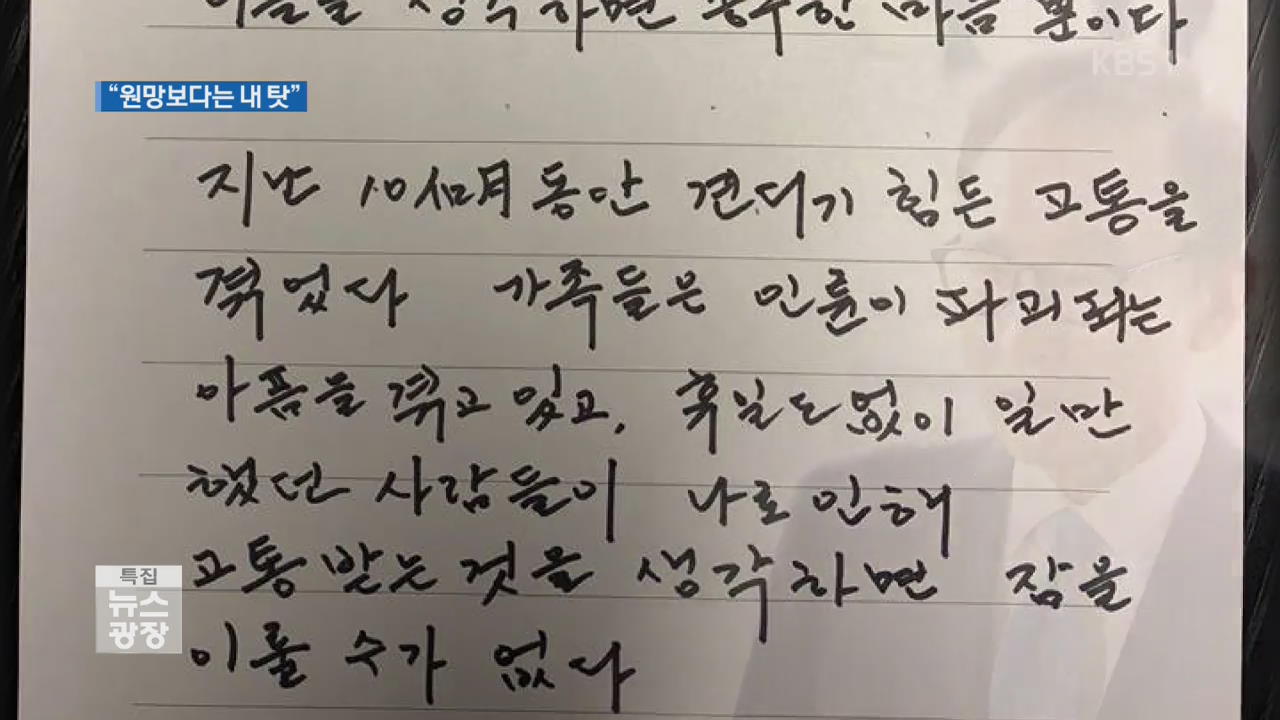 이들을 생각하면 송구한 마음 뿐이다
KBS 1
“원망보다는 내 탓”
지난 10개月동안 견디기 힘든 고통을
겪었다 가족들은 인륜이 파괴되는
아픔을 겪고 있고, 휴일도 없이 일만
했던 사람들이 나로 인해
고통 받는 것을 생각하면 잠을
이룰 수가 없다
특집
뉴스
광장